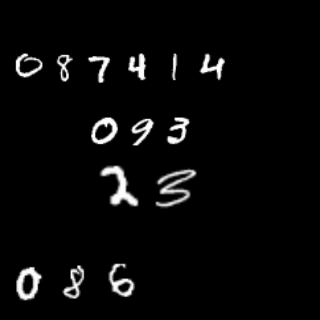 087414
093
23
086